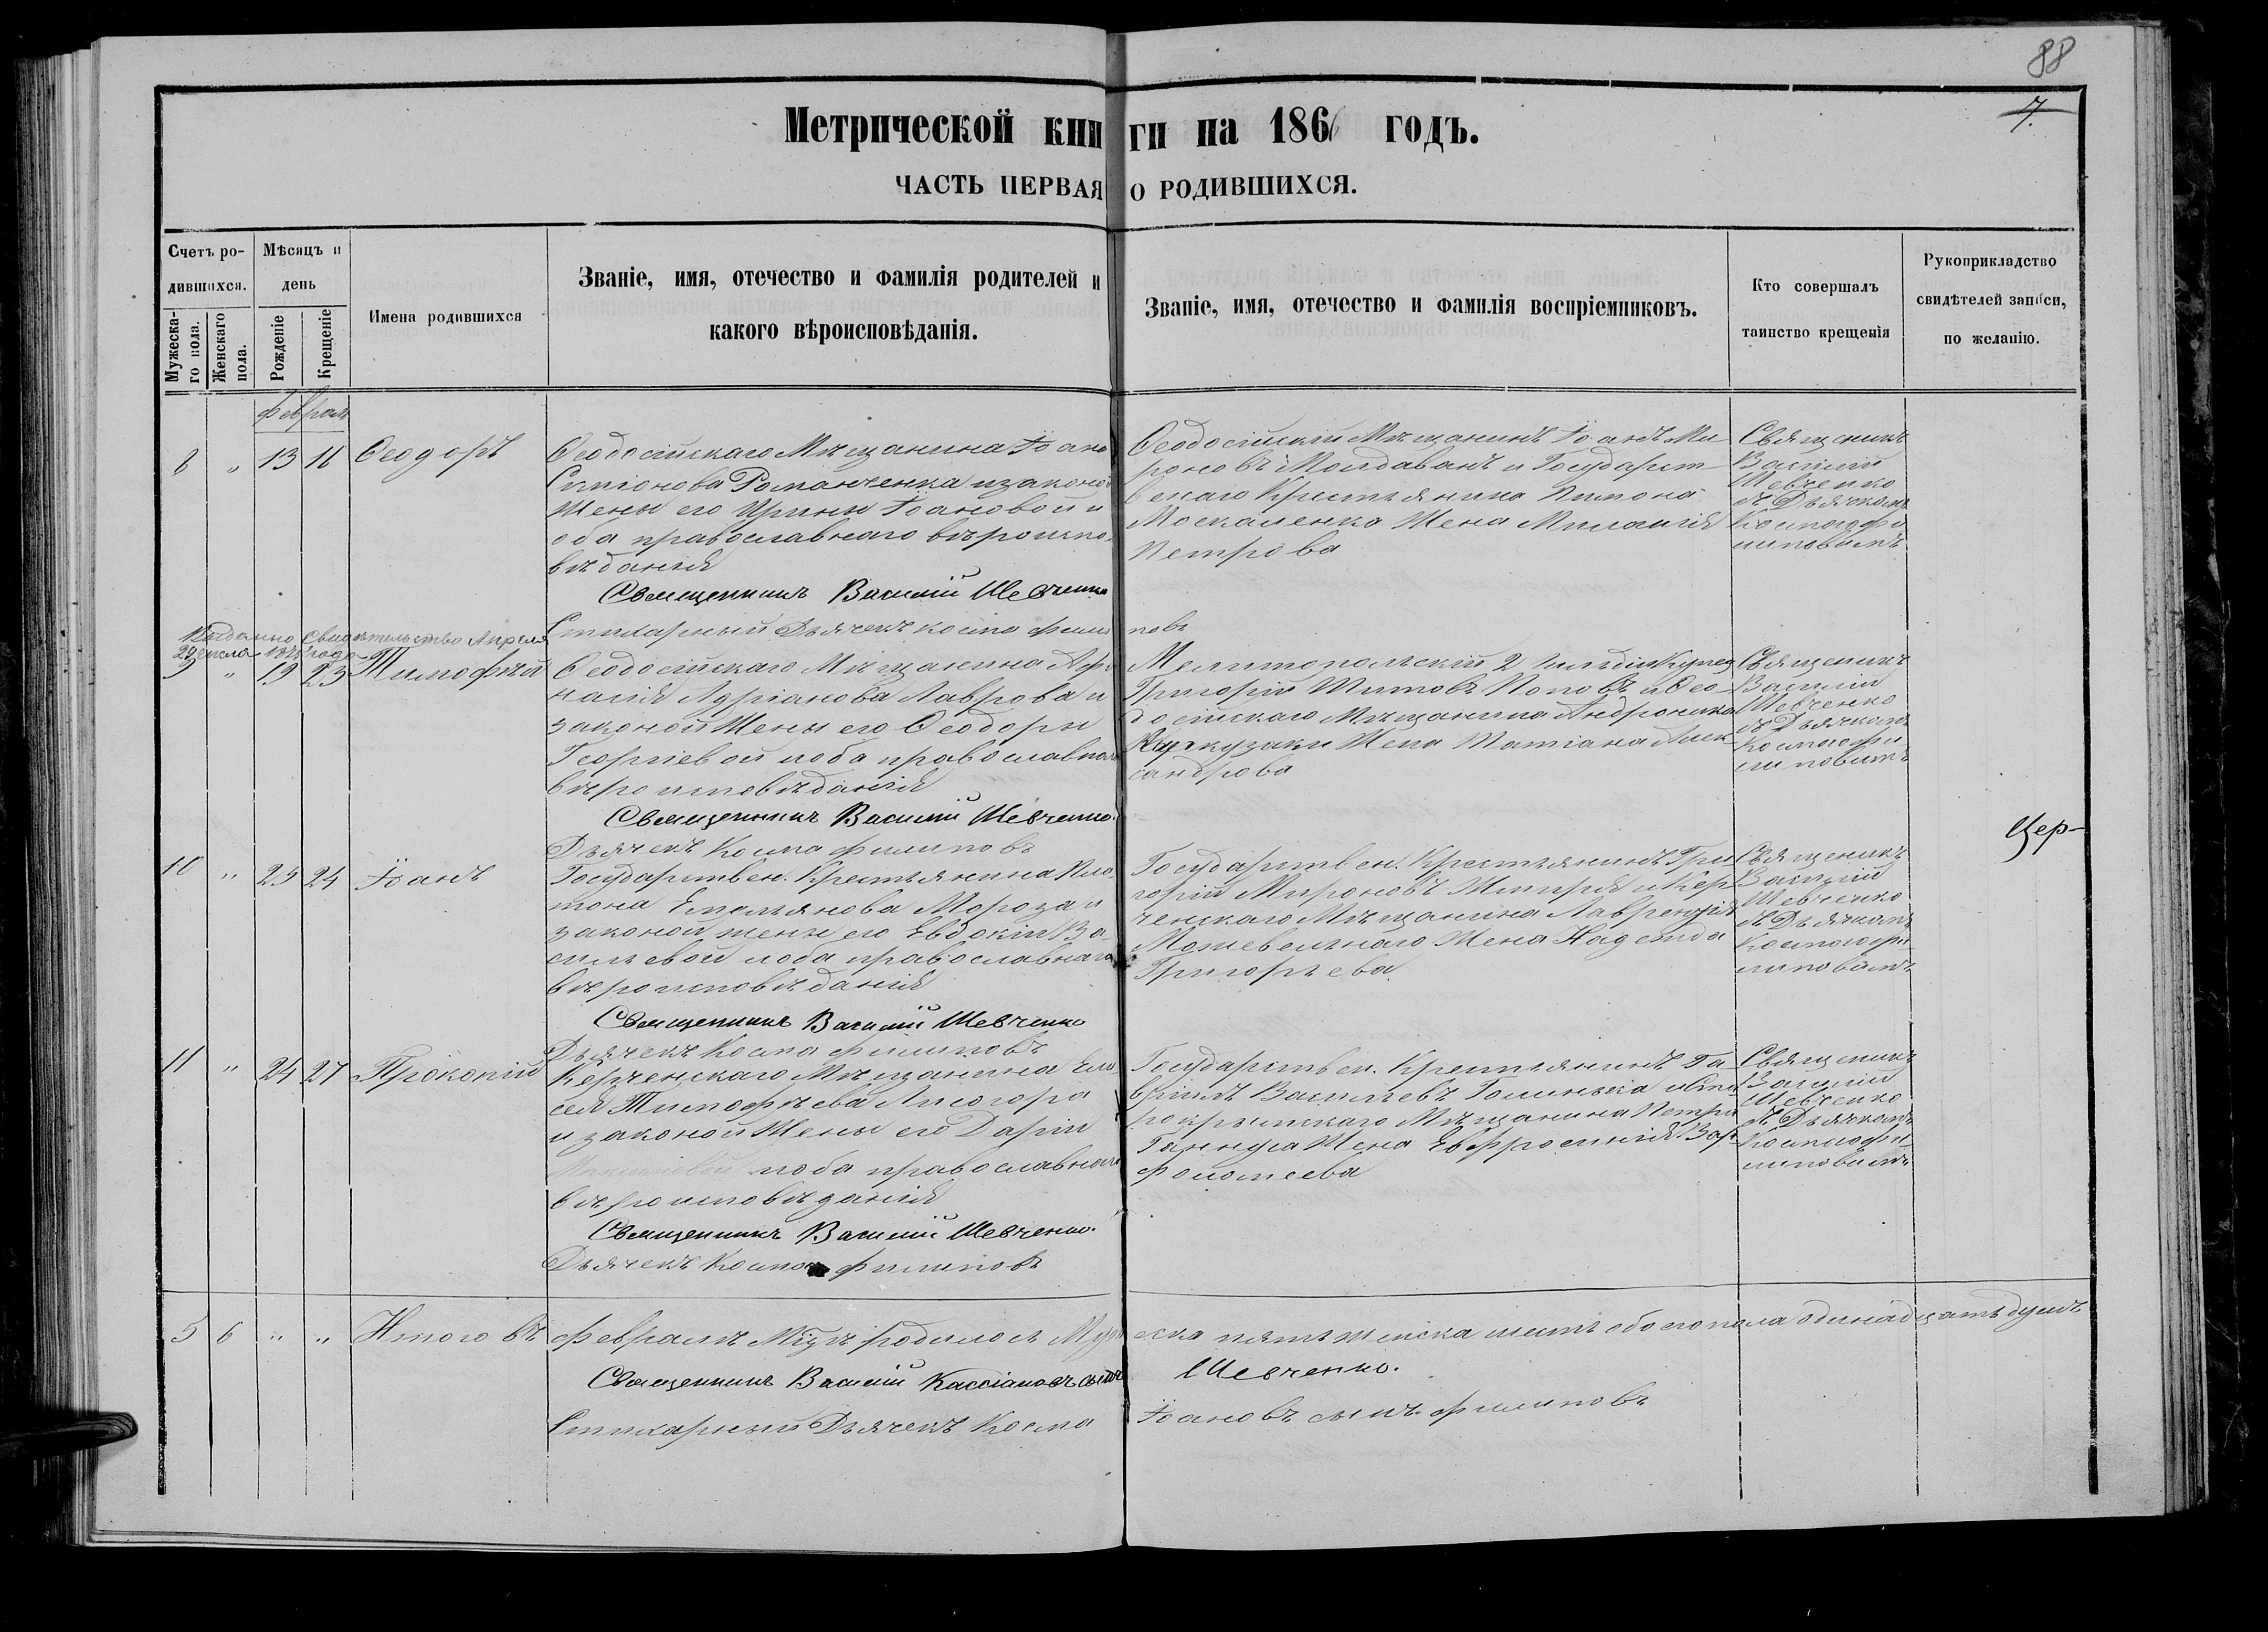 88
7.
Метрической книги на 1866 годъ.
ЧАСТЬ ПЕРВАЯ О РОДИВШИХСЯ.
Счетъ ро-
дившихся.
Мужеска-
го пола.
Женскаго
пола.
Мѣсяцъ и
день
Рожденіе
Крещеніе
Имена родившихся
Званіе, имя, отечество и фамилія родителей и
какого вѣроисповѣданія.
Званіе, имя, отечество и фамилія воспріемниковъ.
Кто совершалъ
таинство крещенія
Рукоприкладство
свидѣтелей записи,
по желанію.
Феврал
8 " 13 16 Ѳеодоръ
Ѳеодосійскаго Мѣщанина Іоана
Симіонова Романченка и законой
Жены его Ирины Іоановой и
оба православнаго вѣроиспо
вѣданія
Священникъ Василій Шевченко
Стихарный Дьячекъ Косма Филиповъ
Ѳеодосійскій Мѣщанинъ Іоанъ Ми
роновъ Молдаванъ и Государст
венаго Крестьянина
Москаленко Жена Миланія
Петрова
Священикъ
Василій
Шевченко
съ Дьячкомъ
Космою Фи
липовымъ
Выданно Свидетельство Апреля
29 числа года
9 " 19 23 Тимофѣй
Ѳеодосійскаго Мѣщанина Афа
насія Адріанова Лаврова и
законой Жены его Ѳеодоры
Георгіевой и оба православнаго
вѣроисповѣданія
Священникъ Василій Шевченко
Дьячекъ Косма Филиповъ
Мелитопольскій 2 Гильдіи Купец
Григорій Титовъ Поповъ и Ѳео
досійскаго Мѣщанина Андроника
Жена Татіана Алек
сандрова
Священикъ
Василій
Шевченко
съ Дьячкомъ
Космою Фи
липовымъ
Цер-
10 " 23 24 Іоанъ
Государствен. Крестьянина Пла
тона Емельянова Мороза и
законой жены его Евдокіи Ва
сильевой и оба православнаго
вѣроисповѣданія
Священникъ Василій Шевченко
Дьячекъ Косма Филиповъ
Государствен. Крестьянинъ Гри
горій Мироновъ и Кер
ченскаго Мѣщанина Лаврентія
Можевельнаго Жена Надежда
Григорьева
Священикъ
Василій
Шевченко
съ Дьячкомъ
Космою Фи
липовымъ
11 " 24 27 Прокопій
Керченскаго Мѣщанина Ели
сея Тимофѣева Лисогора
и законой Жены его Даріи
и оба православнаго
вѣроисповѣданія
Священникъ Василій Шевченко.
Дьячекъ Косма Филиповъ
Государствен. Крестьянинъ Га
вріилъ Васильевъ и Ста
рокрымскаго Мѣщанина Петра
Жена Евфросинія Вар
фоломеева
Священикъ
Василій
Шевченко
съ Дьячкомъ
Космою Фи
липовымъ
5 6 " " Итого въ Февралѣ Мцѣ родилось Мужеска пять женска шесть обоего пола одинадцать душъ
Священникъ Василій Кассіановъ сынъ Шевченко.
Стихарный Дьячекъ Косма Іоановъ сынъ Филиповъ